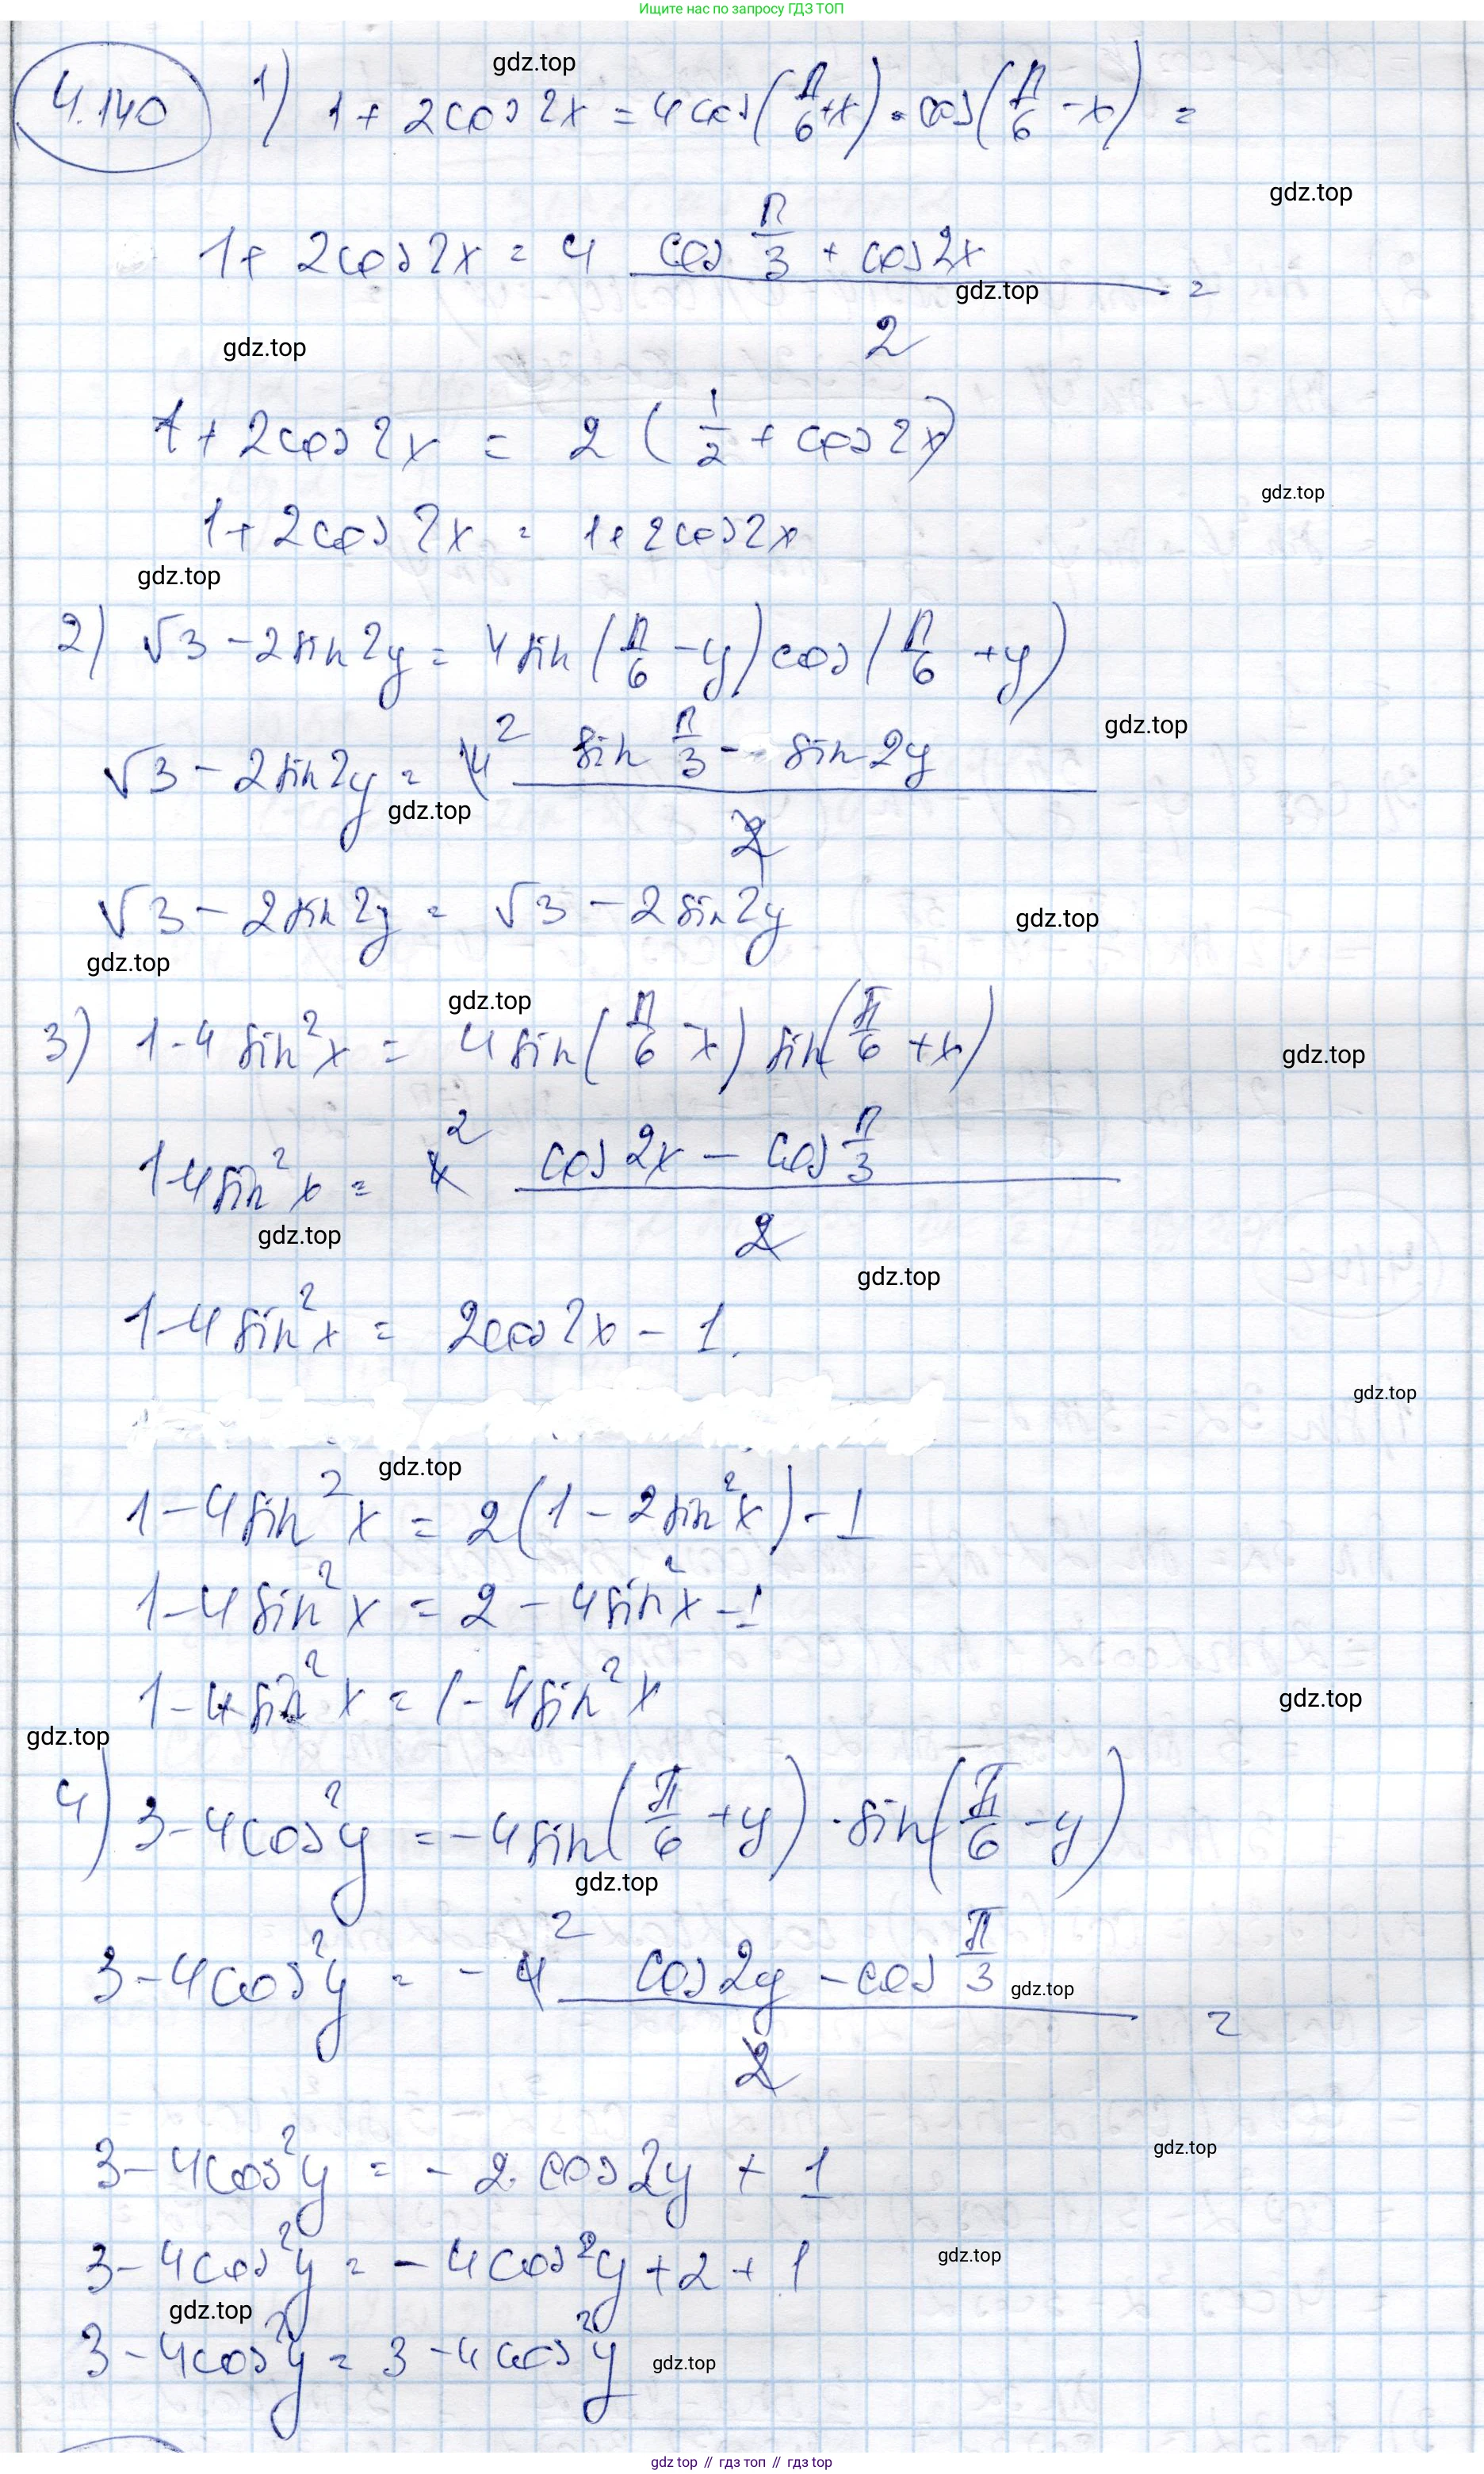 Ищите нас по запросу ГДЗ ТОП
4.140 1) 1 + 2cos 2x = 4 cos(π/6 + x) · cos(π/6 − x) =
gdz.top
gdz.top
1 + 2cos 2x = 4 (cos π/3 + cos 2x)/2 =
gdz.top
gdz.top
1 + 2cos 2x = 2 (1/2 + cos 2x)
gdz.top
1 + 2cos 2x = 1 + 2cos 2x
gdz.top
2) √3 − 2 sin 2y = 4 sin(π/6 − y) cos(π/6 + y)
gdz.top
√3 − 2 sin 2y = 4² (sin π/3 − sin 2y)/2
gdz.top
√3 − 2 sin 2y = √3 − 2 sin 2y
gdz.top
gdz.top
gdz.top
3) 1 − 4 sin² x = 4 sin(π/6 − x) sin(π/6 + x)
gdz.top
1 − 4 sin² x = 4² (cos 2x − cos π/3)/2
gdz.top
gdz.top
1 − 4 sin² x = 2cos 2x − 1.
gdz.top
gdz.top
1 − 4 sin² x = 2(1 − 2 sin² x) − 1
1 − 4 sin² x = 2 − 4 sin² x − 1
1 − 4 sin² x = 1 − 4 sin² x
gdz.top
gdz.top
4) 3 − 4cos² y = −4 sin(π/6 + y) · sin(π/6 − y)
gdz.top
3 − 4cos² y = − 4² (cos 2y − cos π/3)/2 =
gdz.top
3 − 4cos² y = − 2 cos 2y + 1
gdz.top
3 − 4cos² y = − 4cos² y + 2 + 1
gdz.top
gdz.top
3 − 4cos² y = 3 − 4cos² y
gdz.top
gdz top // гдз топ // гдз top